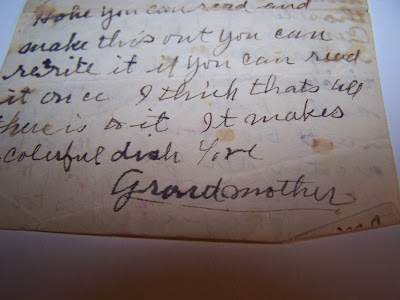 Hope you can read and
make this out you can
rewrite it if you can read
it once I think thats all
there is to it It makes
colerful dish Love
Grandmother